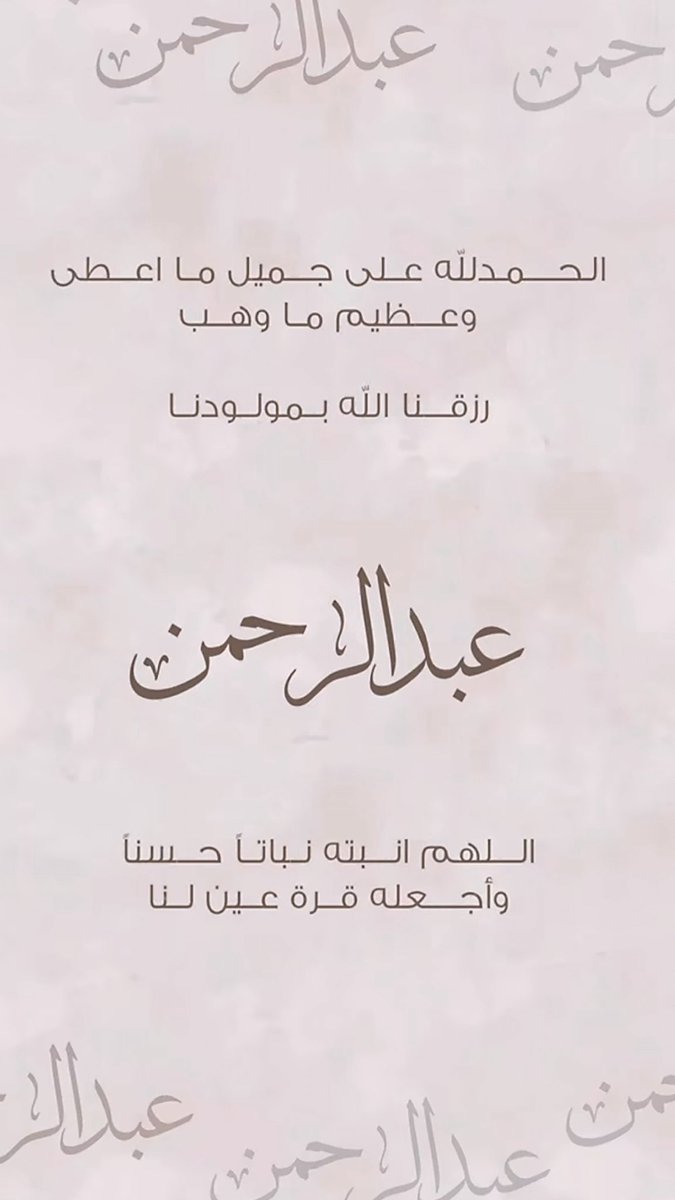 عبدالرحمن
حمن
الحمدلله على جميل ما اعطى
وعظيم ما وهب
رزقنا الله بمولودنا
عبدالرحمن
اللهم انبته نباتاً حسناً
وأجعله قرة عين لنا
عبدالر
حمن
عبدالرحمن